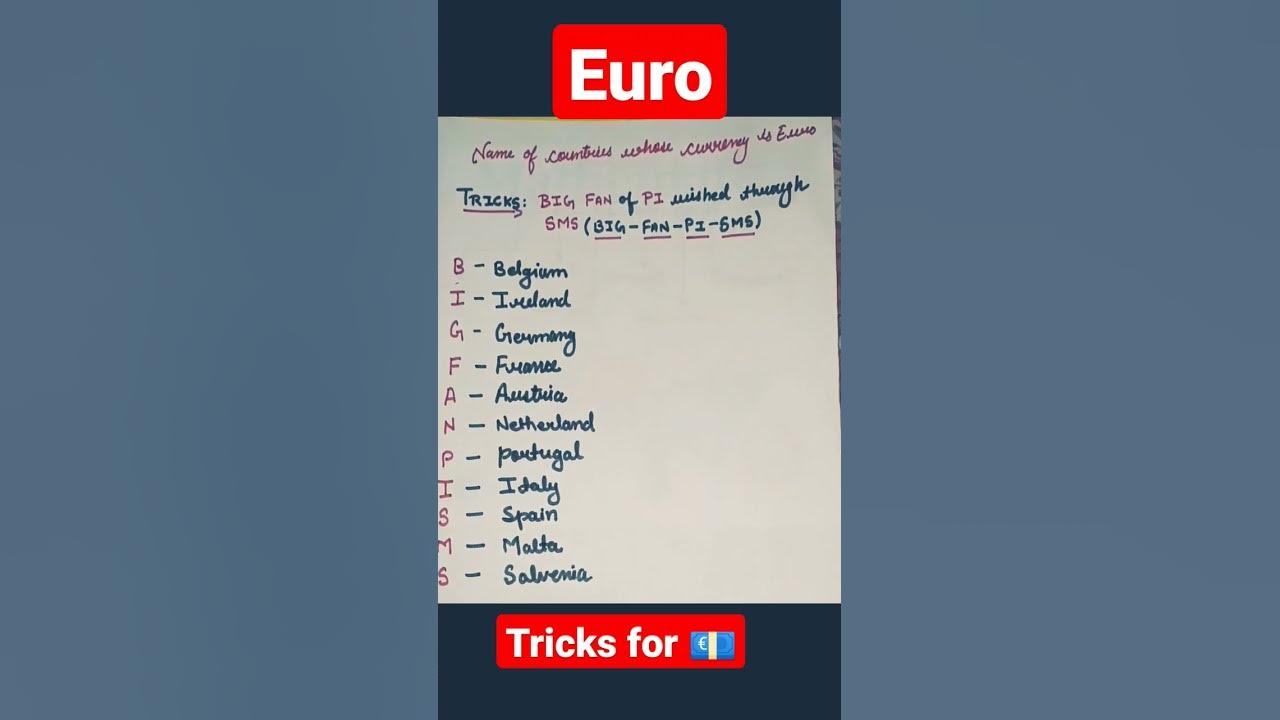 Euro
Name of countries whose currency is Euro
TRICKS: BIG FAN of PI wished through
SMS (BIG-FAN-PI-SMS)
B - Belgium
I - Ireland
G - Germany
F - France
A - Austria
N - Netherland
P - portugal
I - Italy
S - Spain
M - Malta
S - Salvenia
Tricks for 💶